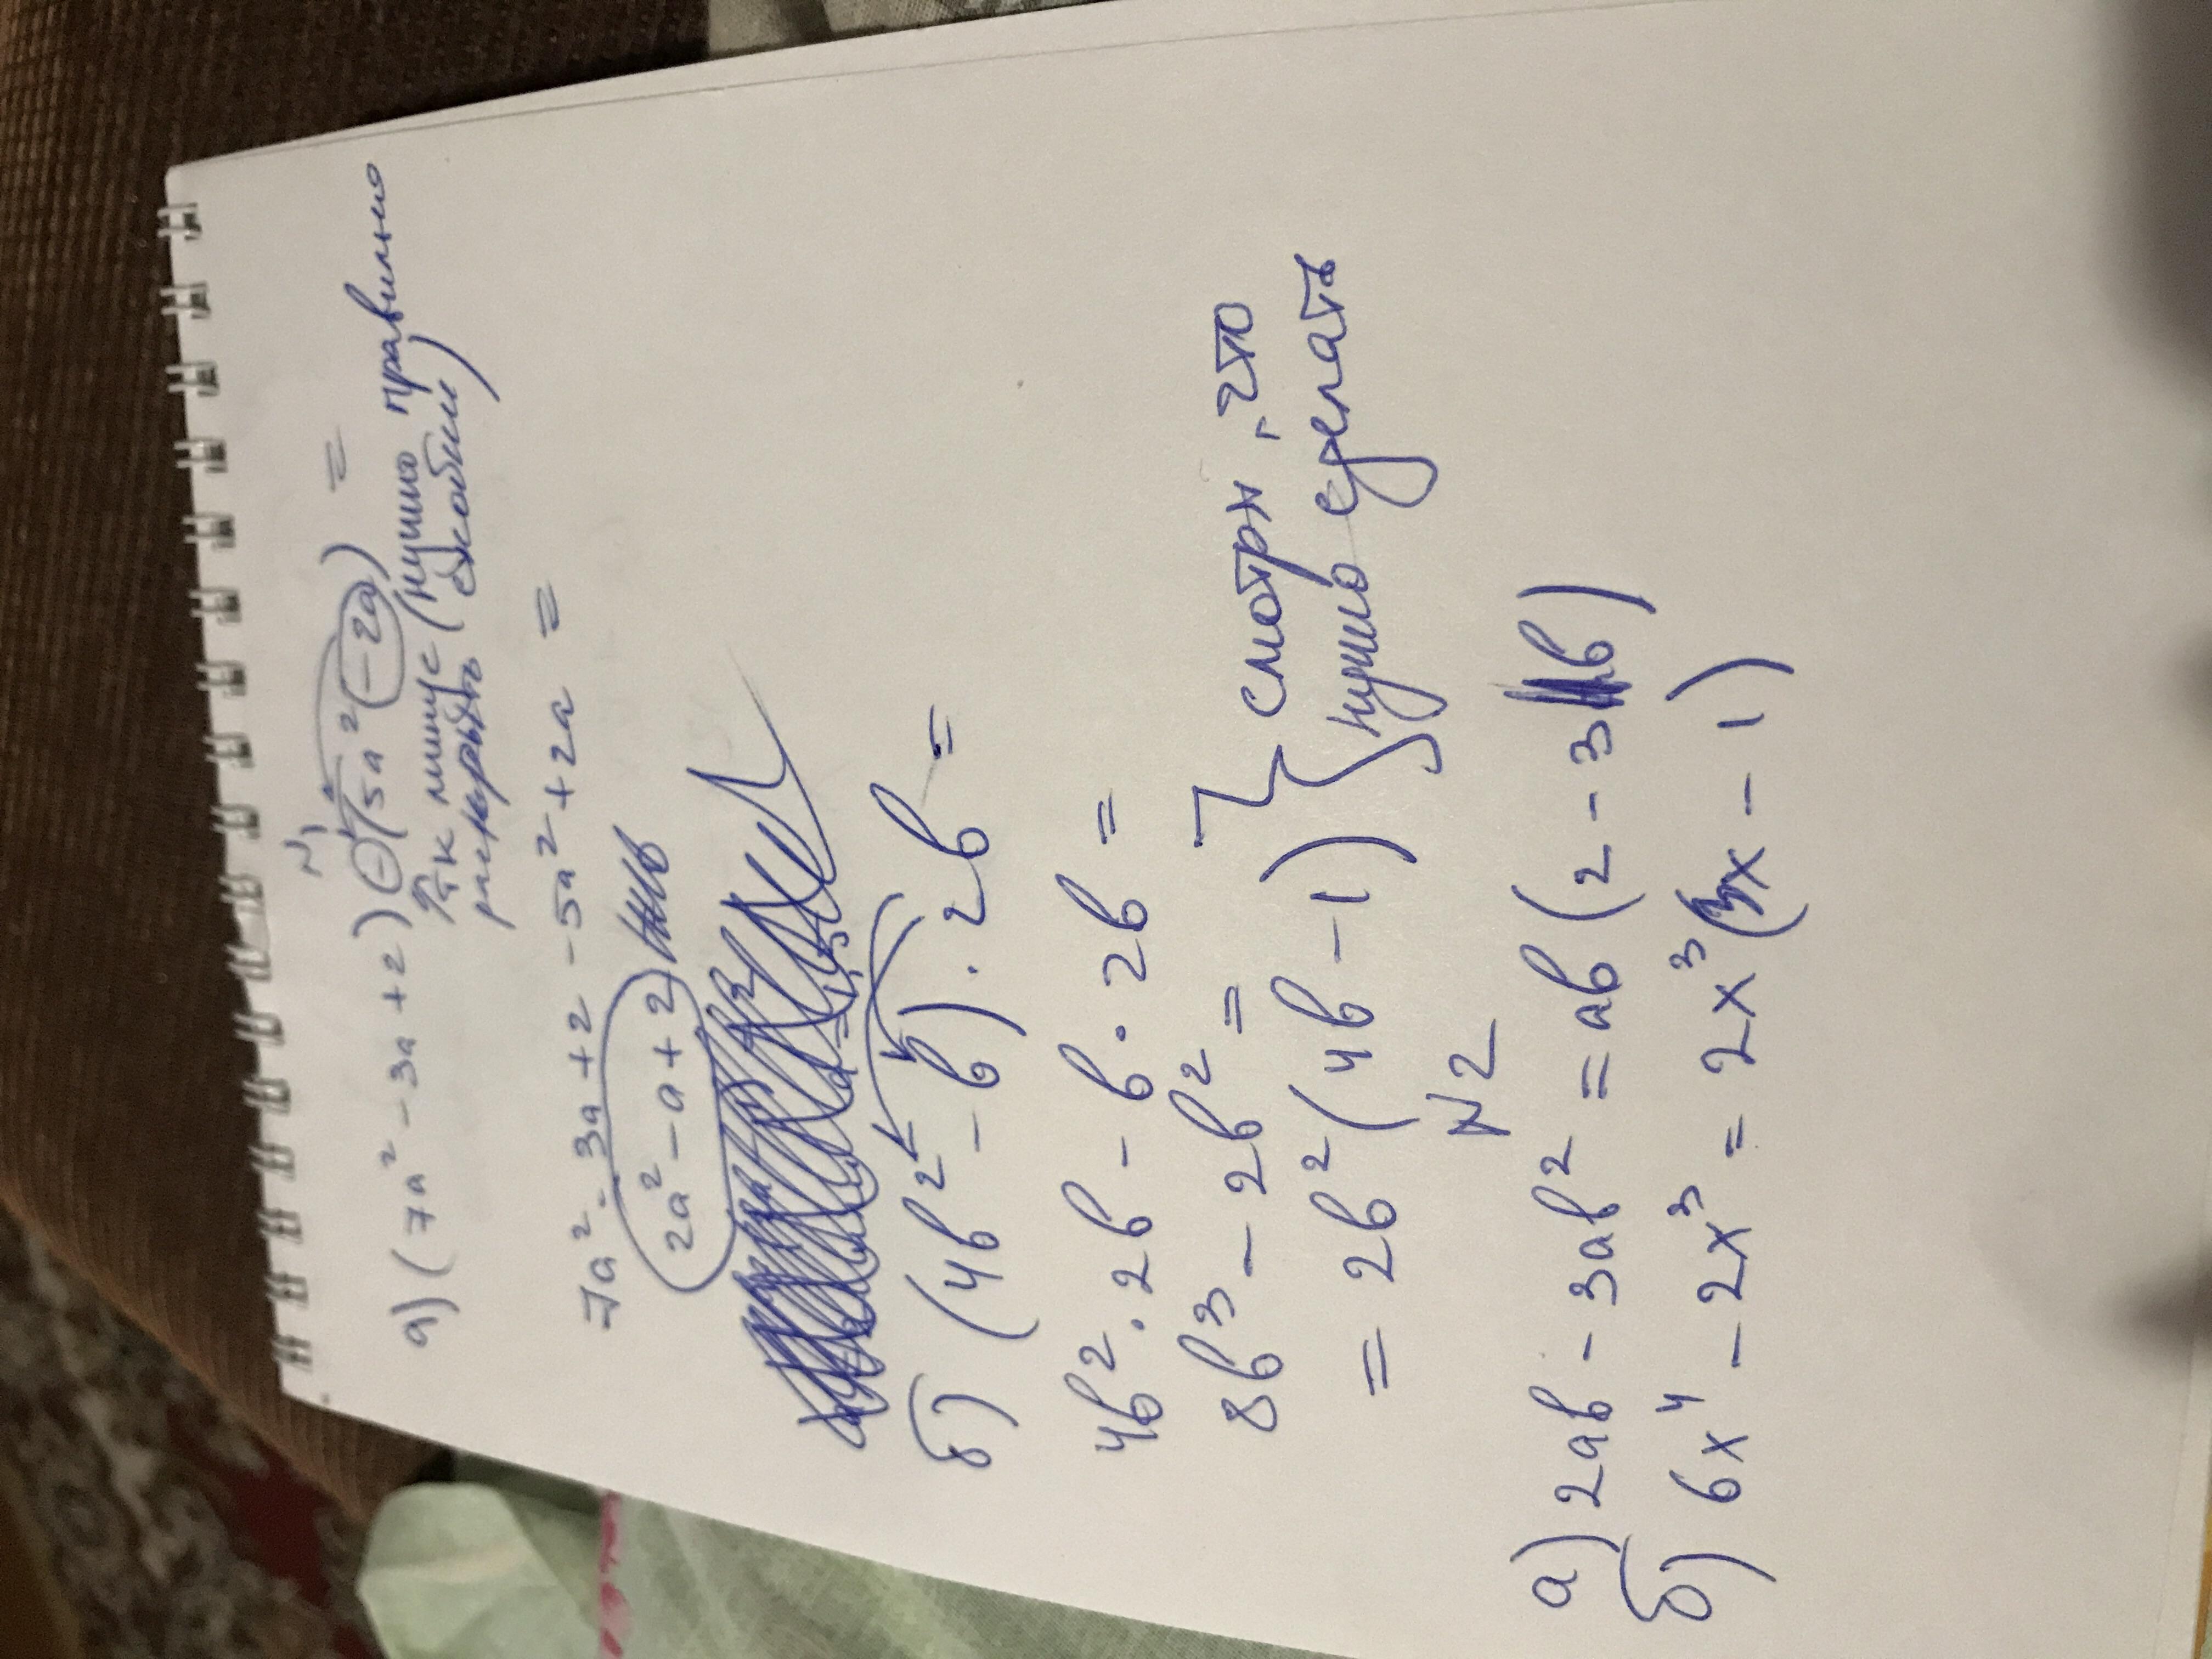 N1
а) (7a² - 3a + 2) - (5a² (- 2a) =
так минус (нужно правильно
раскрыть скобки)
7a² - 3a + 2 - 5a² + 2a =
2a² - a + 2
б) (4b² - b) · 2b =
4b² · 2b - b · 2b =
8b³ - 2b² =
= 2b² (4b - 1)
смотря, что
нужно сделать
N2
а) 2ab - 3ab² = ab (2 - 3b)
б) 6x⁴ - 2x³ = 2x³ (3x - 1)